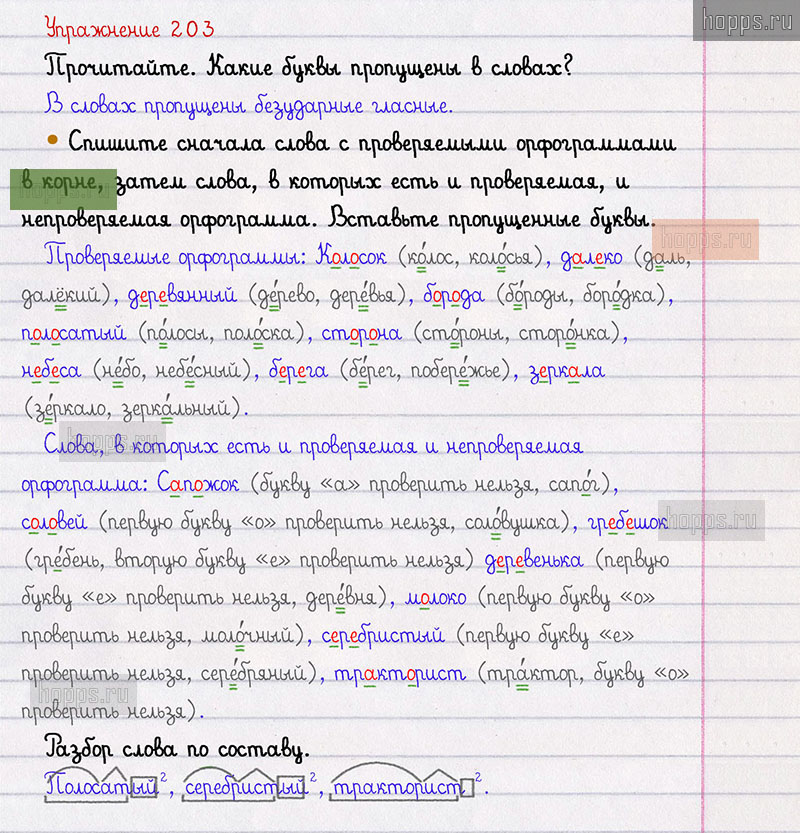 hopps.ru
Упражнение 203
Прочитайте. Какие буквы пропущены в словах?
В словах пропущены безударные гласные.
• Спишите сначала слова с проверяемыми орфограммами
в корне, затем слова, в которых есть и проверяемая, и
hopps.ru
непроверяемая орфограмма. Вставьте пропущенные буквы.
hopps.ru
Проверяемые орфограммы: Колосок (ко́лос, коло́сья), далеко (да́ль,
далёкий), деревянный (де́рево, дере́вья), борода (бо́роды, боро́дка),
полосатый (по́лосы, поло́ска), сторона (сто́роны, сторо́нка),
небеса (не́бо, небе́сный), берега (бе́рег, побере́жье), зеркала
(зе́ркало, зерка́льный).
hopps.ru
Слова, в которых есть и проверяемая и непроверяемая
орфограмма: Сапожок (букву «а» проверить нельзя, сапо́г),
соловей (первую букву «о» проверить нельзя, соло́вушка), гребешок
hopps.ru
(гре́бень, вторую букву «е» проверить нельзя) деревенька (первую
букву «е» проверить нельзя, дере́вня), молоко (первую букву «о»
проверить нельзя, моло́чный), серебристый (первую букву «е»
проверить нельзя, сере́бряный), тракторист (тра́ктор, букву «о»
hopps.ru
проверить нельзя).
Разбор слова по составу.
Полосатый², серебристый², тракторист².